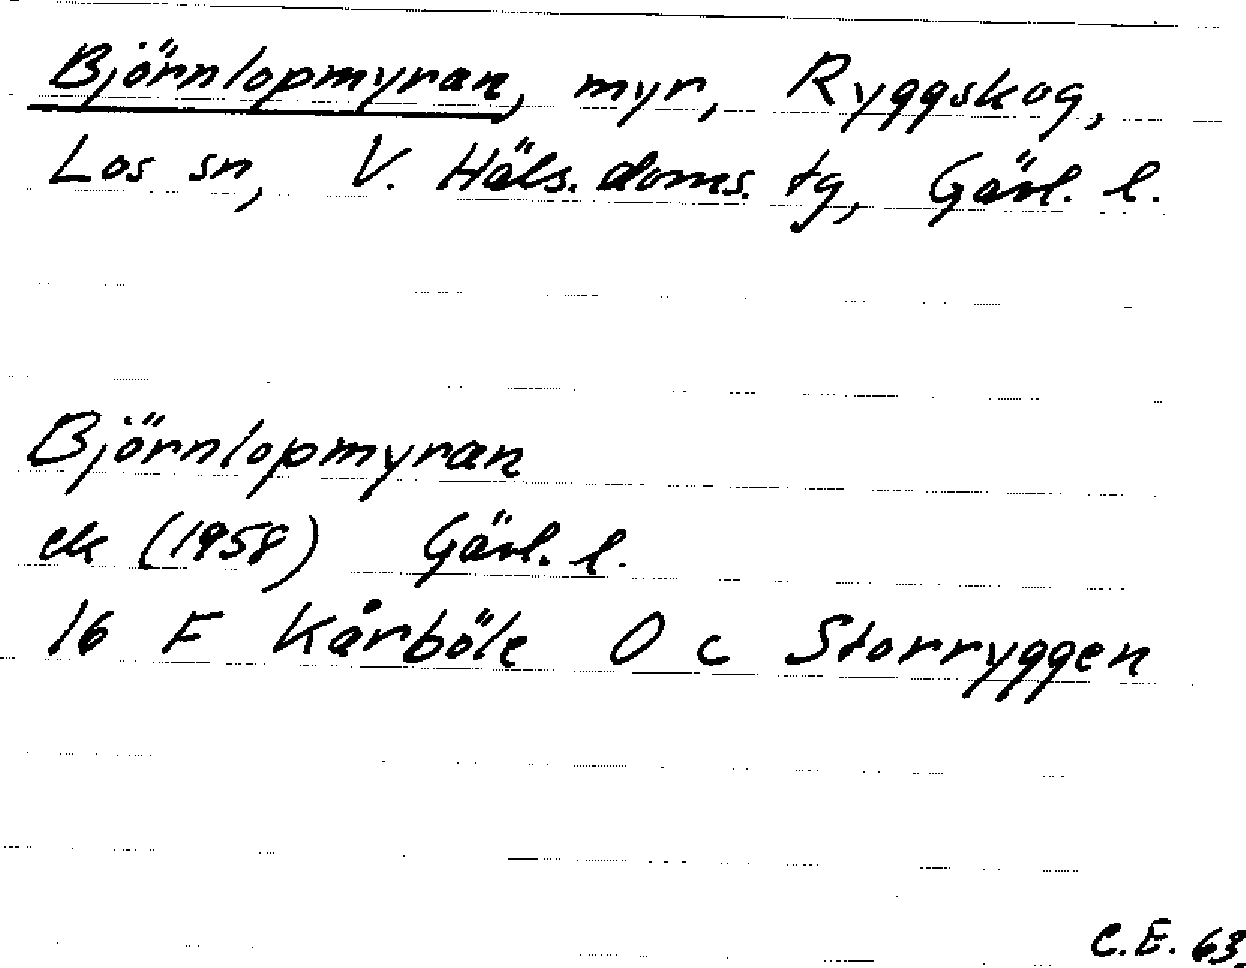 Björnlopmyran, myr, Ryggskog,
Los sn, V. Häls. doms. tg, Gävl. l.
Björnlopmyran
ek (1958) Gävl. l.
16 F Kårböle O c Storryggen
C.E. 63.